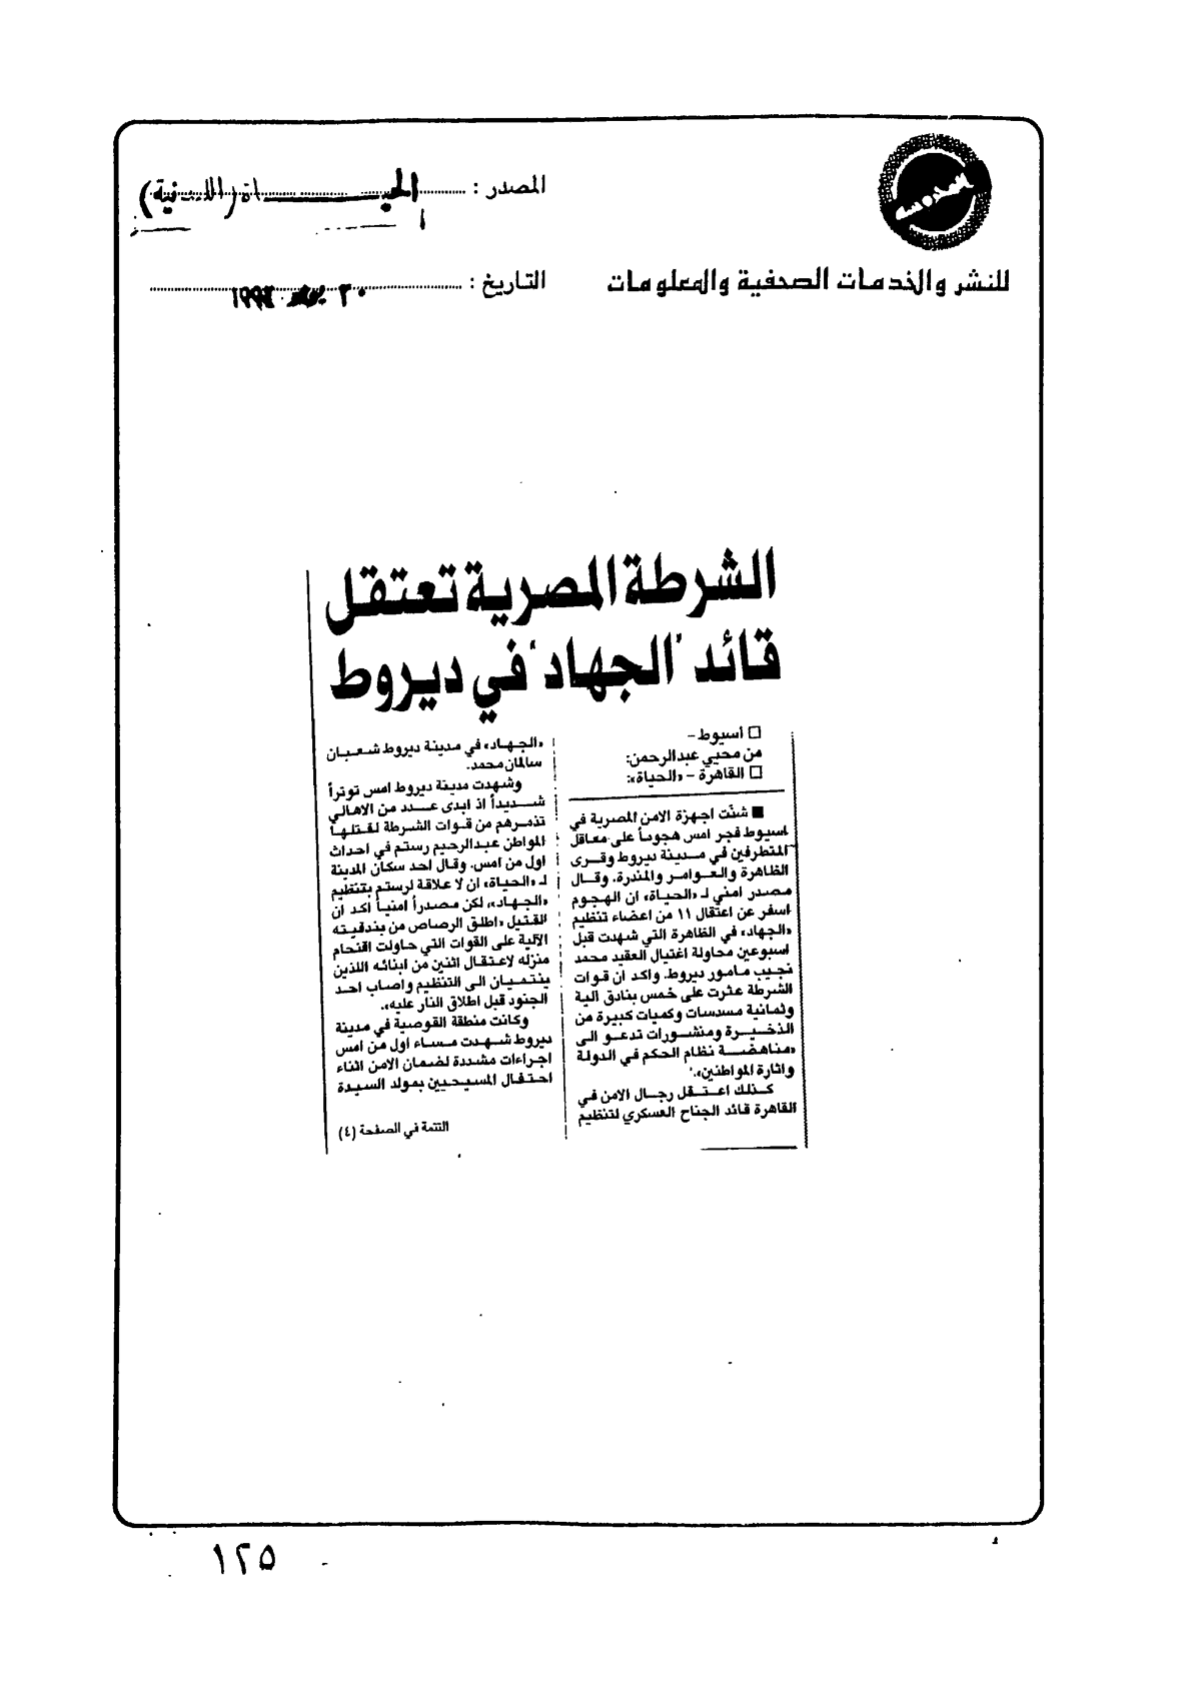 المحروسة
للنشر والخدمات الصحفية والمعلومات
المصدر : الحيـــاة (اللندنية)
التاريخ : ٣٠
الشرطة المصرية تعتقل
قائد "الجهاد" في ديروط
□ اسيوط –
من محيي عبدالرحمن:
□ القاهرة – «الحياة»:
■ شنّت اجهزة الامن المصرية في
اسيوط فجر امس هجوماً على معاقل
المتطرفين في مدينة ديروط وقرى
الظاهرة والعوامر والمندرة. وقال
مصدر امني لـ «الحياة» ان الهجوم
اسفر عن اعتقال ١١ من اعضاء تنظيم
«الجهاد» في الظاهرة التي شهدت قبل
اسبوعين محاولة اغتيال العقيد محمد
نجيب مامور ديروط. واكد ان قوات
الشرطة عثرت على خمس بنادق الية
وثمانية مسدسات وكميات كبيرة من
الذخيرة ومنشورات تدعو الى
«مناهضة نظام الحكم في الدولة
واثارة المواطنين».
كذلك اعتقل رجال الامن في
القاهرة قائد الجناح العسكري لتنظيم
«الجهاد» في مدينة ديروط شعبان
سالمان محمد.
وشهدت مدينة ديروط امس توتراً
شديداً اذ ابدى عدد من الاهالي
تذمرهم من قوات الشرطة لقتلها
المواطن عبدالرحيم رستم في احداث
اول من امس. وقال احد سكان المدينة
لـ «الحياة» ان لا علاقة لرستم بتنظيم
«الجهاد»، لكن مصدراً امنياً اكد ان
القتيل «اطلق الرصاص من بندقيته
الآلية على القوات التي حاولت اقتحام
منزله لاعتقال اثنين من ابنائه اللذين
ينتميان الى التنظيم واصاب احد
الجنود قبل اطلاق النار عليه».
وكانت منطقة القوصية في مدينة
ديروط شهدت مساء اول من امس
اجراءات مشددة لضمان الامن اثناء
احتفال المسيحيين بمولد السيدة
التتمة في الصفحة (٤)
١٢٥